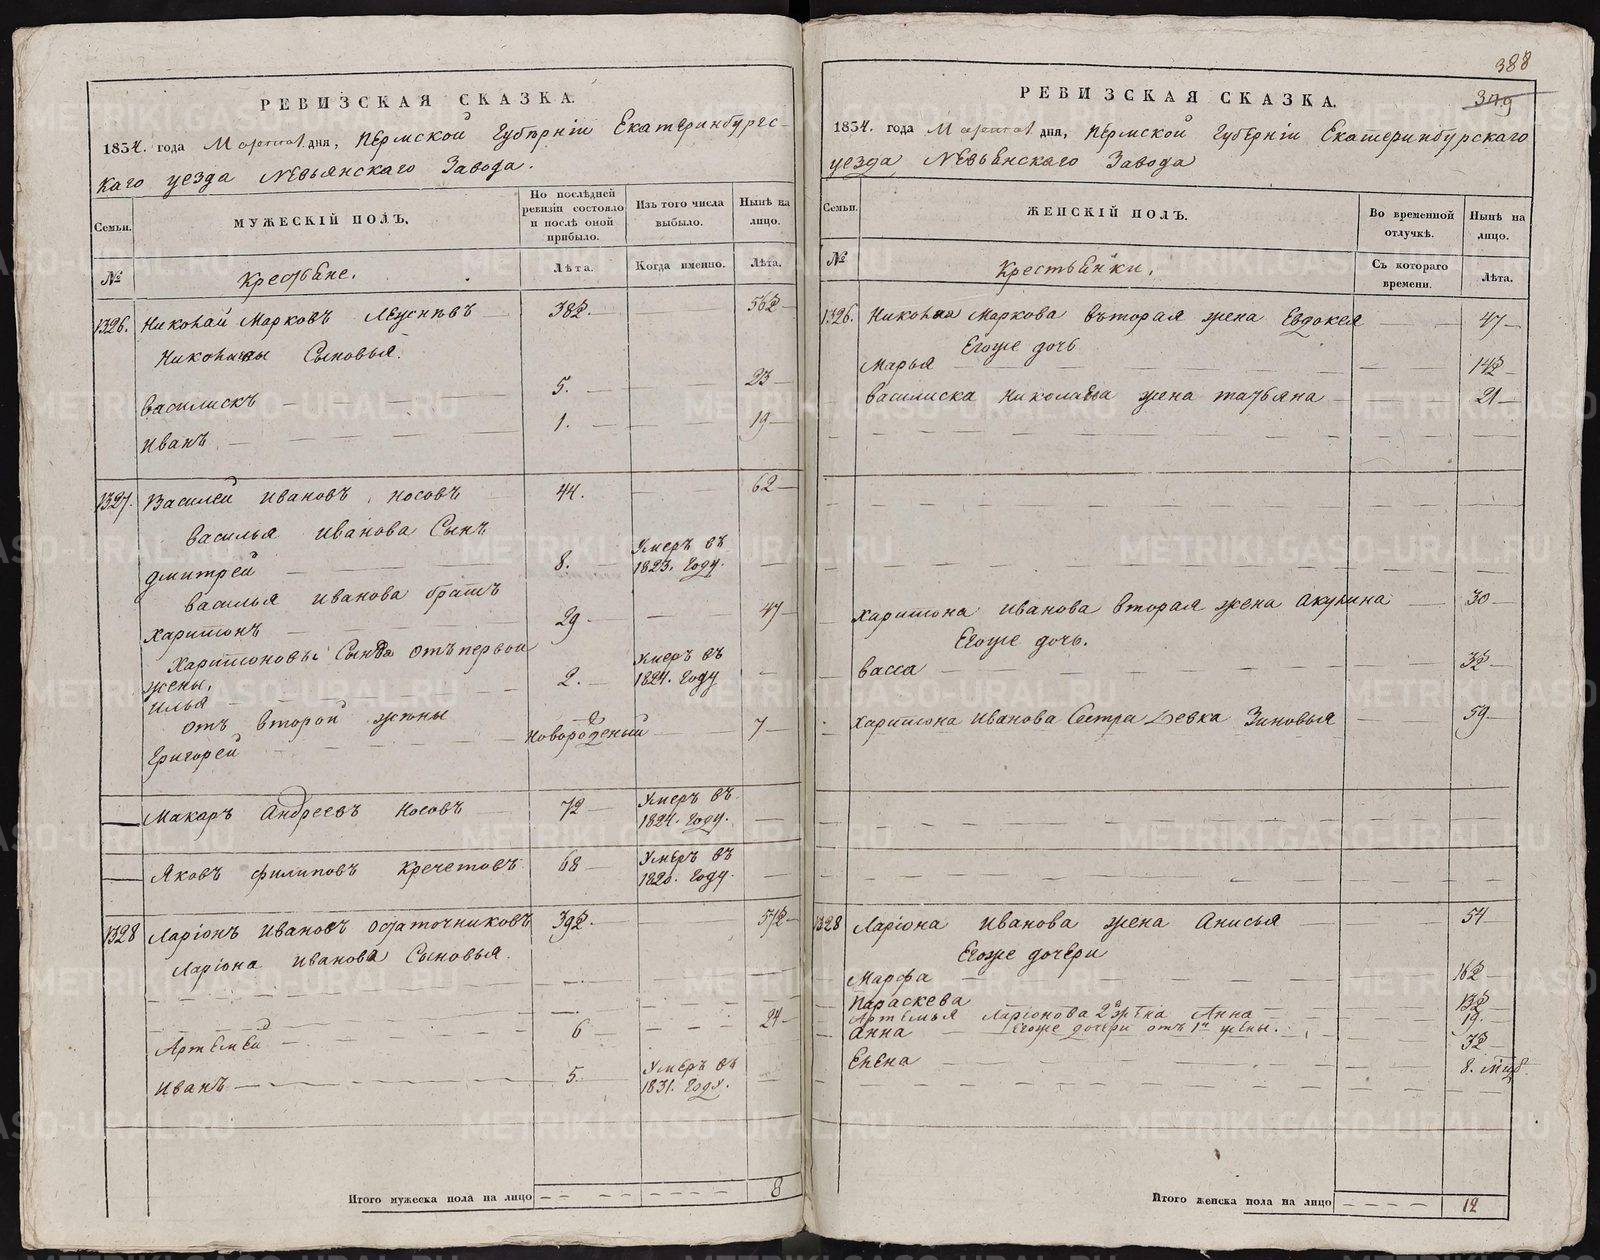 РЕВИЗСКАЯ СКАЗКА.
1834. года Марта дня, Пермской Губерніи Екатеринбургс-
каго уезда Невьянскаго Завода.
Семьи.
МУЖЕСКІЙ ПОЛЪ.
По послѣдней ревизіи состояло и послѣ оной прибыло.
Изъ того числа выбыло.
Нынѣ на лицо.
№
Крестьяне.
Лѣта.
Когда именно.
Лѣта.
1326. Николай Марковъ 38½. 56½
Николаевы Сыновья.
Василискъ 5. 23
Иванъ 1. 19
1327. Василей Ивановъ Носовъ 44. 62
Василья Иванова Сынъ
Дмитрей 8. Умеръ въ 1823. Году.
Василья Иванова братъ
Харитонъ 29. 47
Харитоновы Сынвя отъ первой
жены.
Илья 2. Умеръ въ 1824. Году
отъ второй жены
Григорей Новорожденый 7
Макаръ Андреевъ Носовъ 72 Умеръ въ 1824. Году.
Яковъ Филиповъ Кречетовъ 68 Умеръ въ 1820. Году.
1328 Ларіонъ Ивановъ Остаточниковъ 39½. 57½
Ларіона Иванова Сыновья.
Артемей 6 24
Иванъ 5. Умеръ въ 1831. Году.
Итого мужеска пола на лицо 8
388
379
РЕВИЗСКАЯ СКАЗКА.
1834. года Марта дня, Пермской Губерніи Екатеринбурскаго
уезда Невьенскаго Завода
Семьи.
ЖЕНСКІЙ ПОЛЪ.
Во временной отлучкѣ.
Нынѣ на лицо.
№
Крестьянки.
Съ котораго времени.
Лѣта.
1326. Николая Маркова вторая жена Евдокея 47
Егоже дочь
Марья 14½
Василиска Николаева жена Татьяна 21
Харитона Иванова вторая жена Акулина 30
Егоже дочь.
Васса 3½
Харитона Иванова Сестра Девка Зиновья 59
1328 Ларіона Иванова жена Анисья 54
Егоже дочери
Марфа 16½
Параскева 13½
Артемья Ларіонова 2я жена Анна 19.
Егоже дочери отъ 1й жены.
Анна 3½
Елена 8. мцѣ.
Итого женска пола на лицо 12
METRIKI.GASO-URAL.RU